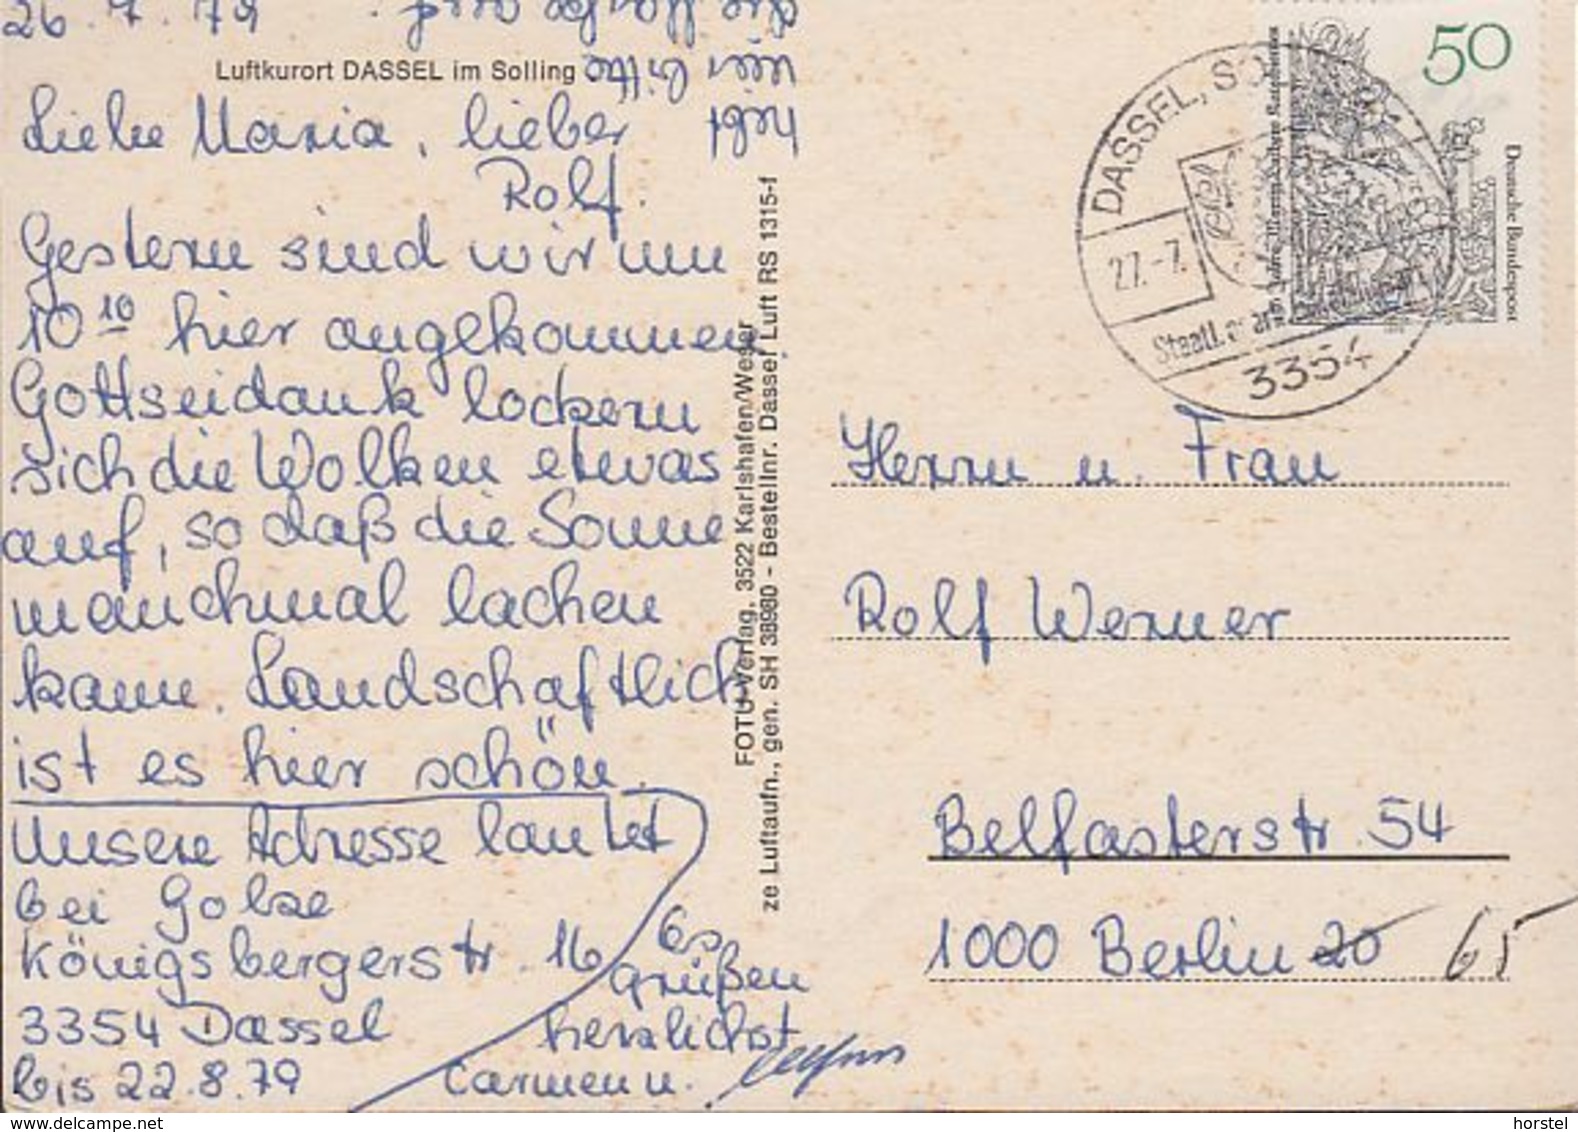 26.7.79
Luftkurort DASSEL im Solling
Liebe Maria, lieber
Rolf.
Gestern sind wir um
10 10 hier angekommen.
Gottseidank lockern
sich die Wolken etwas
auf, so daß die Sonne
manchmal lachen
kann. Landschaftlich
ist es hier schön.
Unsere Adresse lautet
bei Golze
Königsbergerstr. 16
3354 Dassel
bis 22.8.79
Es
grüßen
herzlichst
Carmen u.
bitte
FOTU-Verlag, 3522 Karlshafen/Weser
ze Luftaufn., gen. SH 38980 - Bestellnr. Dassel Luft RS 1315-f
50
Deutsche Bundespost
DASSEL, SO
27.-7.
Staatl.
3354
Herrn u. Frau
Rolf Werner
Belfasterstr. 54
1000 Berlin 20 65
www.delcampe.net
horstel